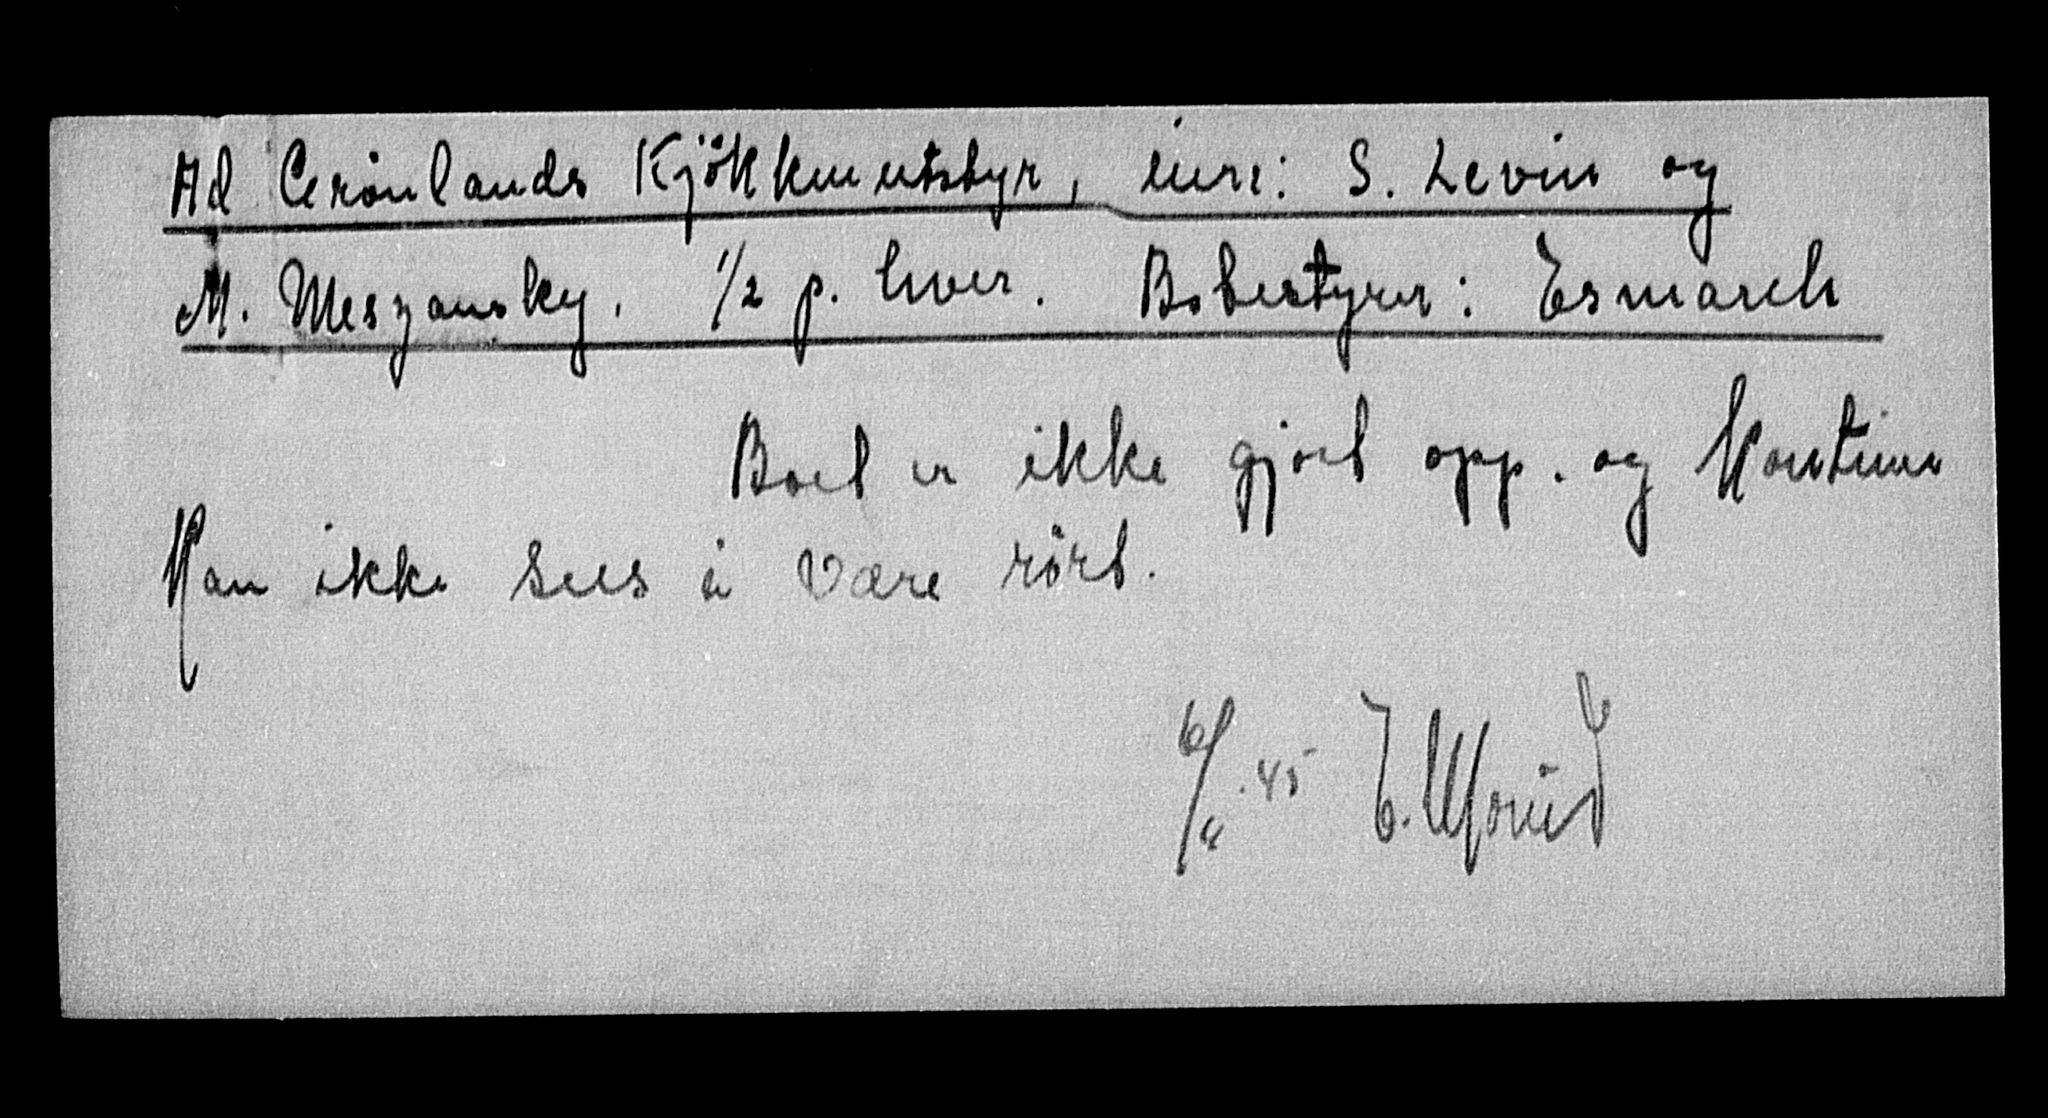 Ad Grönlands Kjökkenutstyr, inne: S. Levin og
M. Meszansky. 1/2 p. hver. Bobestyrer: Esmarch
Boet er ikke gjort opp. og kontiene
kan ikke sees å være rört.
6/8.45